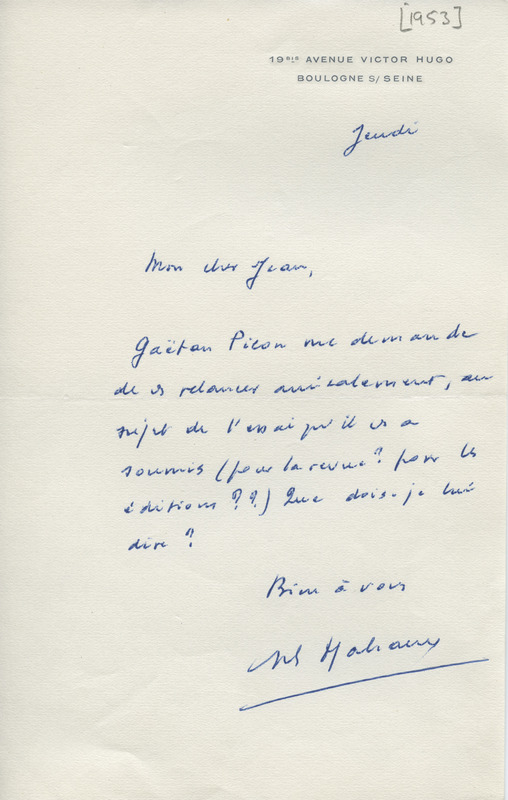 [1953]
19BIS AVENUE VICTOR HUGO
BOULOGNE S/SEINE
Jeudi
Mon cher Jean,
Gaëtan Picon me demande
de vs relancer amicalement, au
sujet de l'essai qu'il vs a
soumis (pour la revue ? pour les
éditions ??) Que dois-je lui
dire ?
Bien à vous
Malraux